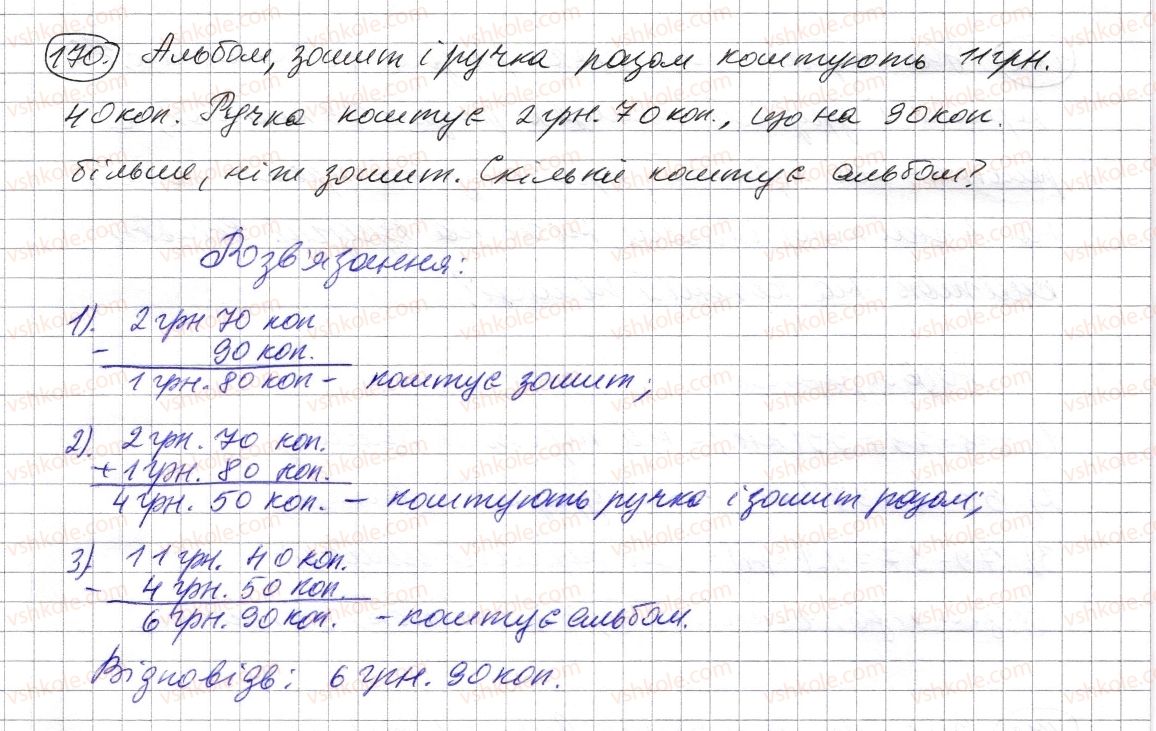 170. Альбом, зошит і ручка разом коштують 11 грн.
40 коп. Ручка коштує 2 грн. 70 коп., що на 90 коп.
більше, ніж зошит. Скільки коштує альбом?
Розв'язання:
1). 2 грн 70 коп
- 90 коп.
1 грн. 80 коп - коштує зошит;
2). 2 грн. 70 коп.
+ 1 грн. 80 коп.
4 грн. 50 коп. - коштують ручка і зошит разом;
3) 11 грн. 40 коп.
- 4 грн. 50 коп.
6 грн. 90 коп. - коштує альбом.
Відповідь: 6 грн. 90 коп.